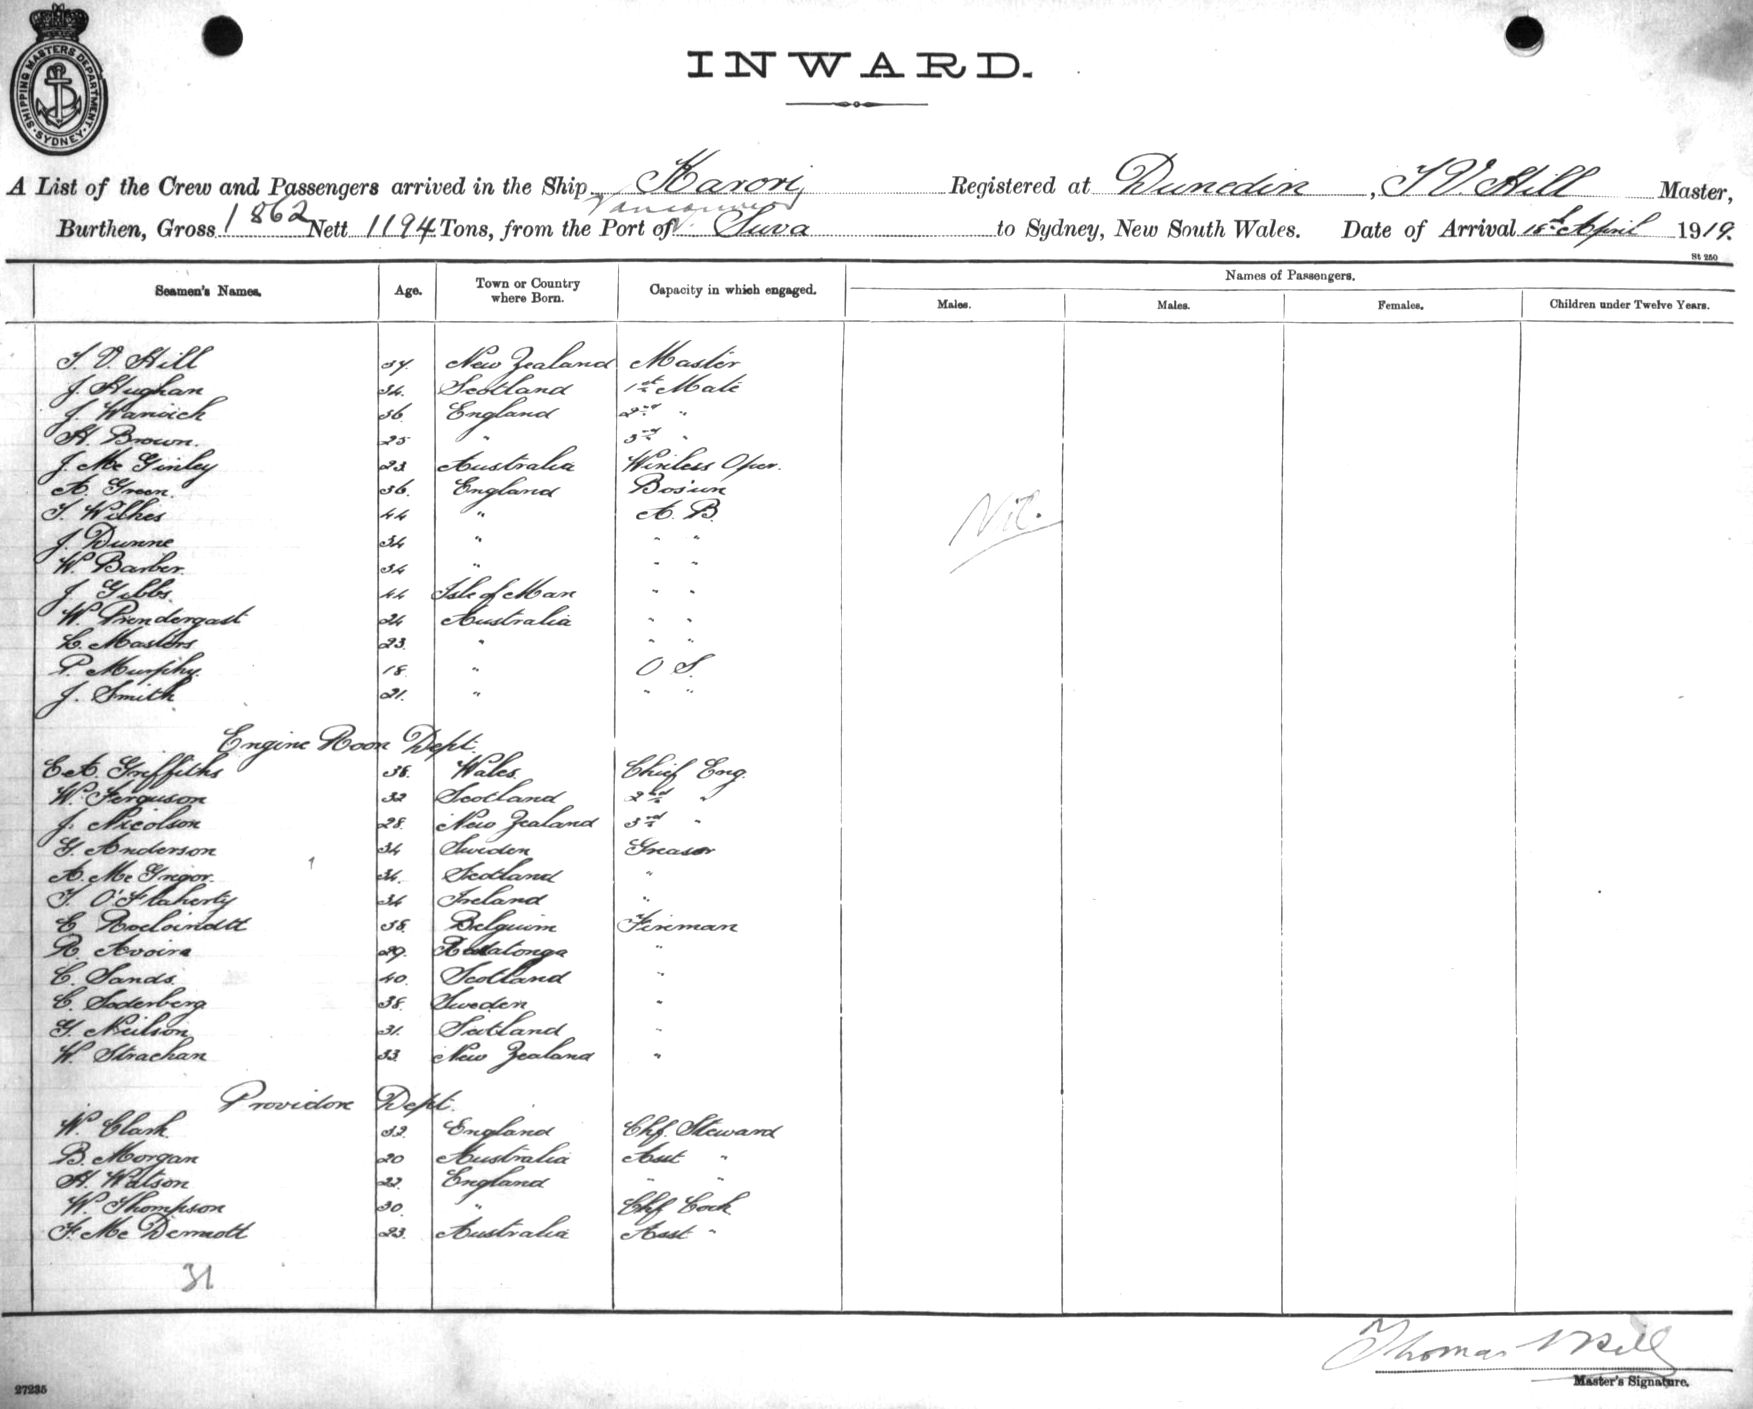 SHIPPING MASTERS DEPARTMENT
SYDNEY
INWARD.
A List of the Crew and Passengers arrived in the Ship Karori Registered at Dunedin, T V. Hill Master,
Vancouver
Burthen, Gross 1862 Nett 1194 Tons, from the Port of Suva to Sydney, New South Wales. Date of Arrival April 1919.
St 250
Seamen's Names. Age. Town or Country where Born. Capacity in which engaged. Names of Passengers.
Males. Males. Females. Children under Twelve Years.
T. V. Hill 37. New Zealand Master
J. Hughan 34. Scotland 1st Mate
J. Warwick 36 England 2nd "
H. Brown. 25 " 3rd "
J. Mc Ginley 23 Australia Wireless Oper.
A. Green. 36. England Bos'un
T. Wilkes 44 " A. B.
Nil.
J. Dunne 34 " " "
W. Barber. 34 " " "
J. Gibbs. 44 Isle of Man " "
W. Prendergast 24 Australia " "
L. Masters 23. " " "
P. Murphy. 18. " O S.
J. Smith 21. " " "
Engine Room Dept.
E.A. Griffiths 38. Wales. Chief Eng.
W. Ferguson 32 Scotland 2nd "
J. Nicolson 28. New Zealand 3rd "
G. Anderson 34 Sweden Greaser
A. Mc Gregor. 34. Scotland "
T. O'Flaherty 34 Ireland "
E. 38. Belguim Fireman
R. 29. "
C. Sands. 40. Scotland "
C. Soderberg 38. Sweden "
G. Neilson 31. Scotland "
W. Strachan 33 New Zealand "
Providore Dept.
W. Clark 32. England Chf. Steward
B. Morgan 20 Australia Asst "
H. Watson 22. England " "
W. Thompson 30. " Chf Cook
F. Mc Dermott 23. Australia Asst "
31
Thomas V Hill
Master's Signature.
27235